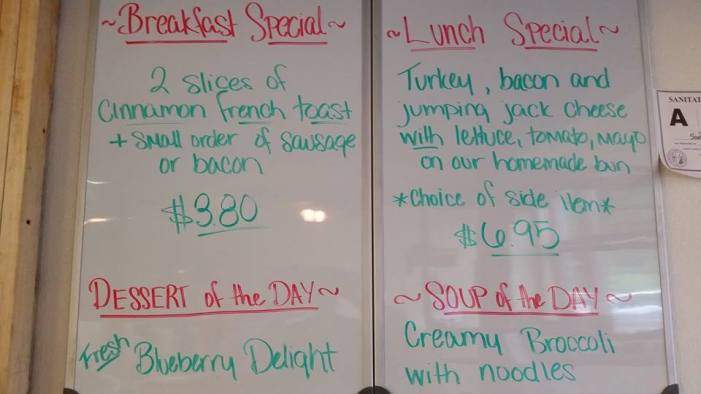 ~Breakfast Special~
2 slices of
Cinnamon french toast
+ small order of sausage
or bacon
$3.80
DESSERT of the DAY~
Fresh Blueberry Delight
~Lunch Special~
Turkey, bacon and
jumping jack cheese
with lettuce, tomato, mayo
on our homemade bun
*Choice of side item*
$6.95
~SOUP of the DAY~
Creamy Broccoli
with noodles
SANITAT
A